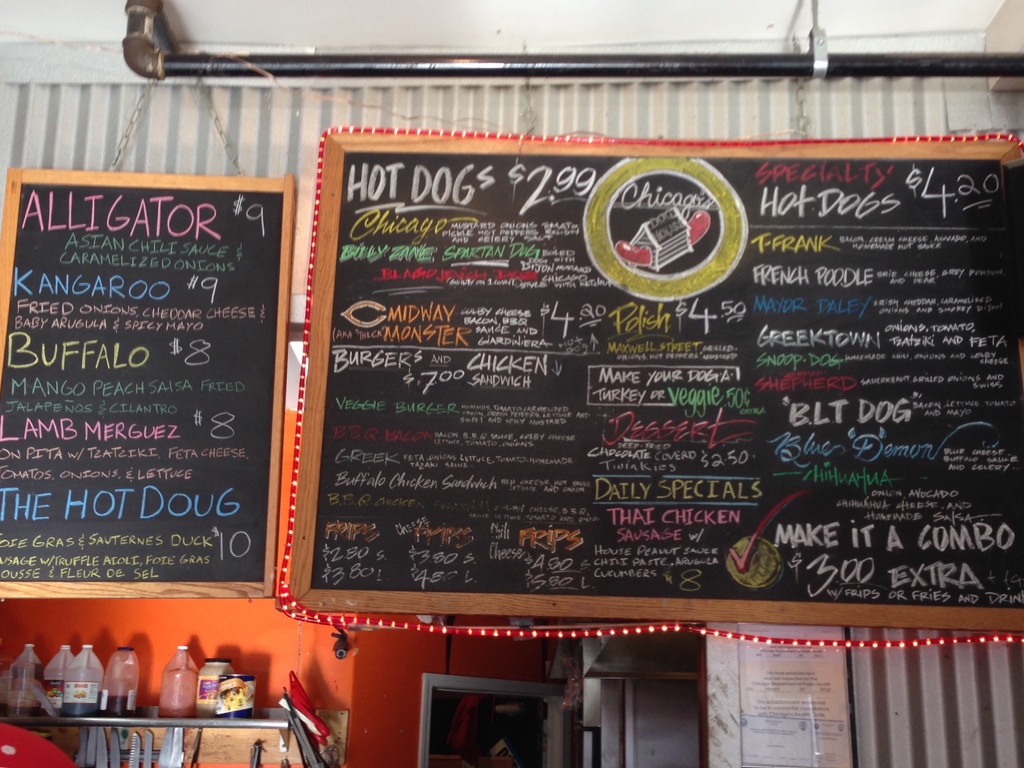 ALLIGATOR $9
ASIAN CHILI SAUCE &
CARAMELIZED ONIONS
KANGAROO $9
FRIED ONIONS, CHEDDAR CHEESE &
BABY ARUGULA & SPICY MAYO
BUFFALO $8
MANGO PEACH SALSA FRIED
JALAPENOS & CILANTRO
LAMB MERGUEZ $8
ON PITA W/ TZATZIKI, FETA CHEESE,
TOMATOS, ONIONS, & LETTUCE
THE HOT DOUG
FOIE GRAS & SAUTERNES DUCK $10
W/TRUFFLE AIOLI, FOIE GRAS
& FLEUR DE SEL
HOT DOGS $2.99
Chicago MUSTARD ONIONS TOMATO
PICKLE HOT PEPPERS RELISH
AND CELERY SALT
BILLY ZANE, SPARTAN DOG
MIDWAY
MONSTER
COLBY CHEESE
BACON, B.B.Q
SAUCE AND
GIARDINIERA
$4.20
BURGERS AND CHICKEN
$7.00 SANDWICH
VEGGIE BURGER
B.B.Q BACON BACON, B.B.Q SAUCE, COLBY CHEESE
LETTUCE, TOMATO, ONIONS
GREEK FETA, ONIONS, LETTUCE, TOMATO, HOMEMADE
SAUCE
Buffalo Chicken Sandwich
B.B.Q CHICKEN
FRIPS
$2.80 S.
$3.80 L.
Cheese FRIPS
$3.80 S.
$4.80 L.
Chili Cheese FRIPS
$4.80 S.
$5.80 L.
Chicago's
DOG
HOUSE
Polish $4.50
MAXWELL STREET GRILLED
ONIONS, HOT PEPPERS, MUSTARD
MAKE YOUR DOG A
TURKEY OR Veggie 50¢
EXTRA
DESSERT
DEEP-FRIED
CHOCOLATE COVERD $2.50
TWINKIES
DAILY SPECIALS
THAI CHICKEN
SAUSAGE W/
HOUSE PEANUT SAUCE
CHILI PASTE, ARUGULA
CUCUMBERS $8
SPECIALTY
HOT DOGS $4.20
T-FRANK BACON, CREAM CHEESE, AVOCADO, AND
HOT SAUCE
FRENCH POODLE BRIE CHEESE, GREY POUPON,
AND PEAR
MAYOR DALEY IRISH CHEDDAR, CARAMELIZED
ONIONS AND SMOKEY DIJON
GREEKTOWN ONIONS, TOMATO,
TZATZIKI AND FETA
SNOOP-DOG HOMEMADE CHILI, ONIONS AND COLBY
CHEESE
SHEPHERD SAUERKRAUT, GRILLED ONIONS AND
SWISS
"B.L.T DOG" BACON, LETTUCE, TOMATO
AND MAYO
Blue "D"emon BLUE CHEESE,
BUFFALO SAUCE
AND CELERY
CHIHUAHUA
ONION, AVOCADO
CHIHUAHUA CHEESE, AND
HOMEMADE SALSA
MAKE IT A COMBO
$3.00 EXTRA
W/ FRIPS OR FRIES AND DRINK